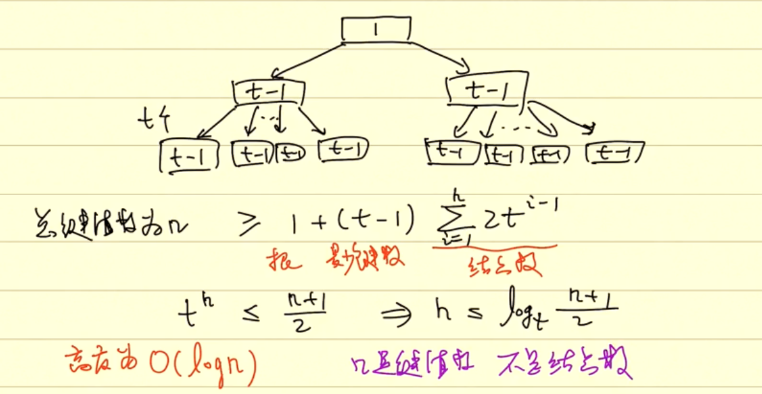 1
t-1 t-1
t个 ... ...
t-1 t-1 t-1 t-1 t-1 t-1 t-1 t-1
总键值数为n ≥ 1 + (t-1) \sum_{i=1}^{h} 2t^{i-1}
根 最少键数 结点数
t^h ≤ \frac{n+1}{2} ⇒ h ≤ log_t \frac{n+1}{2}
高度为 O(logn) n是键值数 不是结点数